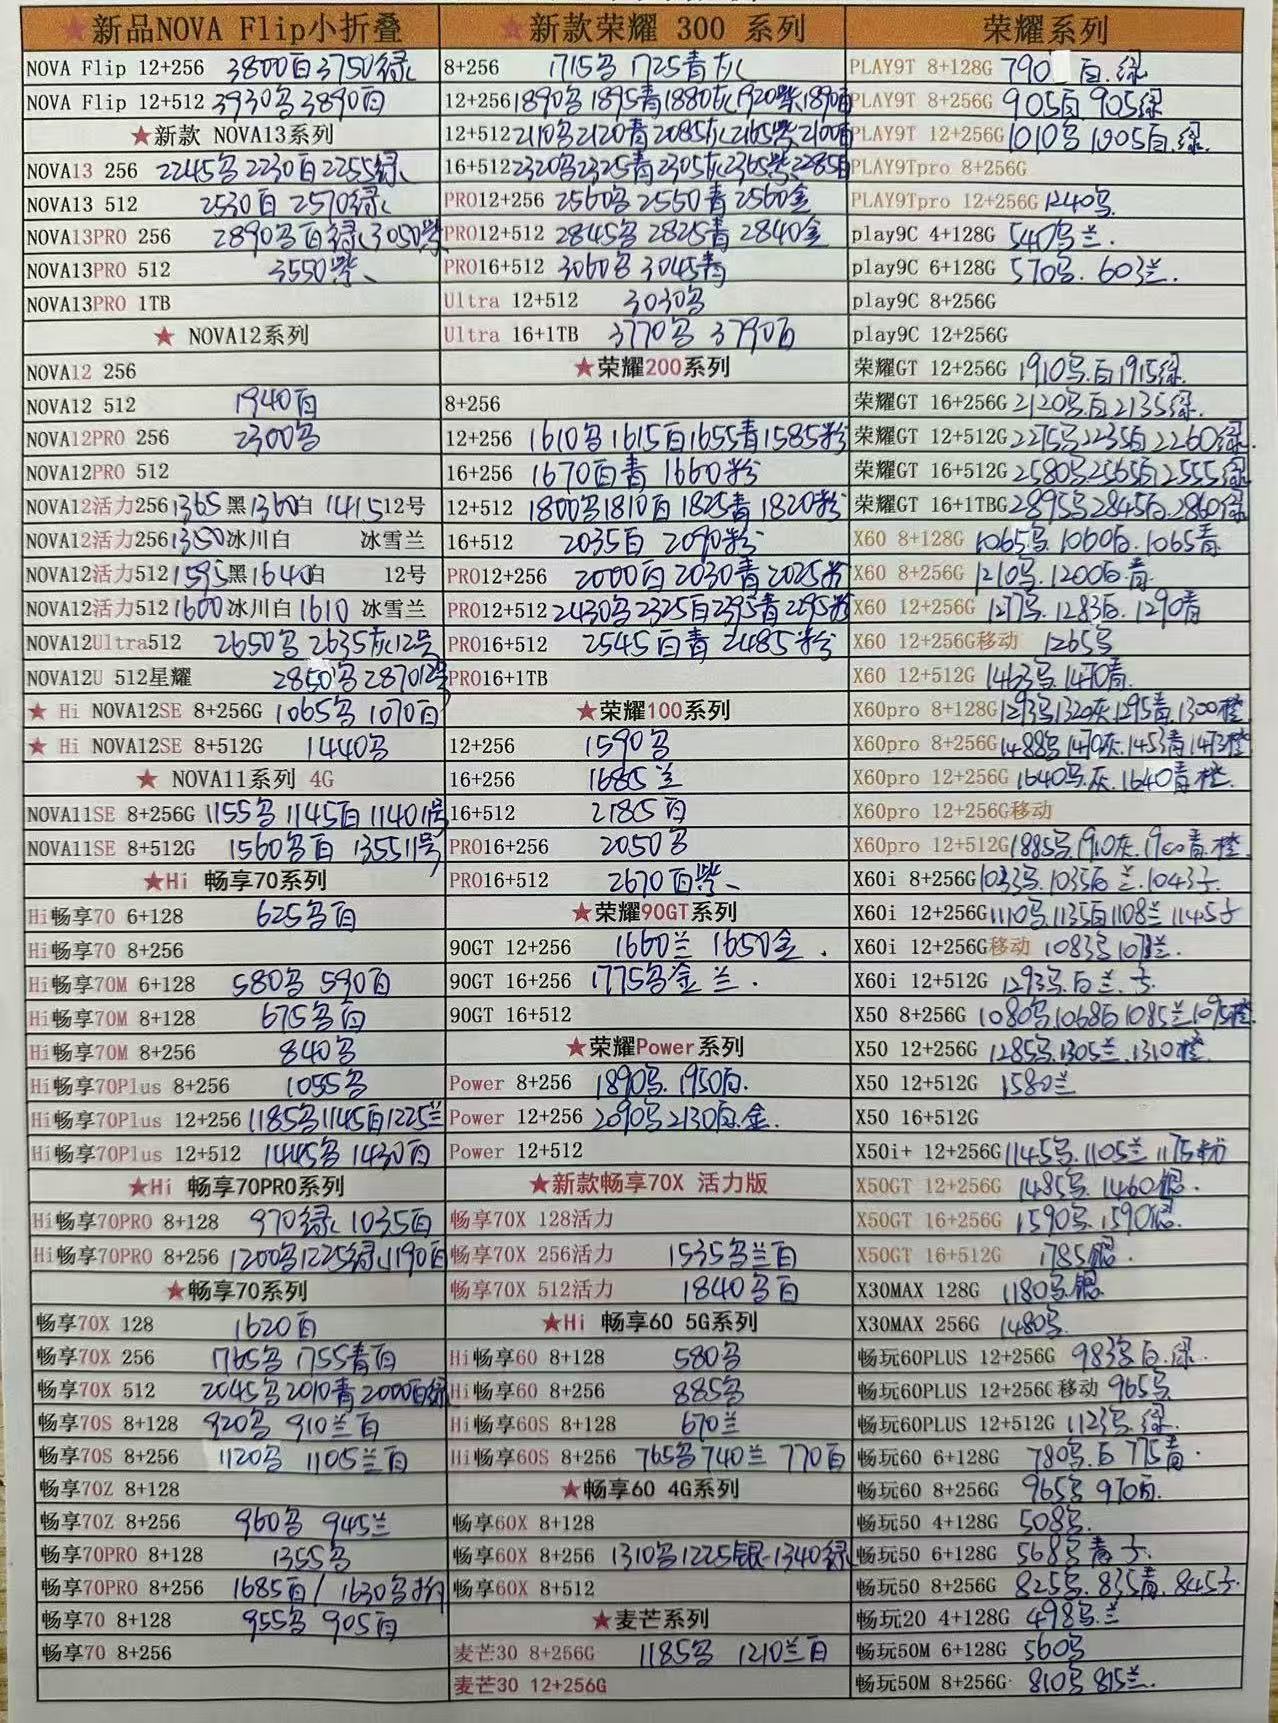 ★新品NOVA Flip小折叠
NOVA Flip 12+256 3800白3750绿
NOVA Flip 12+512 3930黑3890白
★新款 NOVA13系列
NOVA13 256 2245黑2230白2255绿
NOVA13 512 2530白 2570绿
NOVA13PRO 256 2890黑白绿3050紫
NOVA13PRO 512 3550紫
NOVA13PRO 1TB
★ NOVA12系列
NOVA12 256
NOVA12 512 1940白
NOVA12PRO 256 2300黑
NOVA12PRO 512
NOVA12活力256 1365黑1360白 1415 12号
NOVA12活力256 1350冰川白 冰雪兰
NOVA12活力512 1595黑1640白 12号
NOVA12活力512 1600冰川白1610 冰雪兰
NOVA12Ultra512 2650黑 2635灰12号
NOVA12U 512星耀 2850黑 2870 12号
★ Hi NOVA12SE 8+256G 1065黑 1070白
★ Hi NOVA12SE 8+512G 1440黑
★ NOVA11系列 4G
NOVA11SE 8+256G 1155黑 1145白 1140 11号
NOVA11SE 8+512G 1560黑白 1355 11号
★Hi 畅享70系列
Hi畅享70 6+128 625黑白
Hi畅享70 8+256
Hi畅享70M 6+128 580黑 590白
Hi畅享70M 8+128 675黑白
Hi畅享70M 8+256 840黑
Hi畅享70Plus 8+256 1055黑
Hi畅享70Plus 12+256 1185黑1145白1225兰
Hi畅享70Plus 12+512 1445黑 1430白
★Hi 畅享70PRO系列
Hi畅享70PRO 8+128 970绿 1035白
Hi畅享70PRO 8+256 1200黑1225绿1190白
★畅享70系列
畅享70X 128 1620白
畅享70X 256 1765黑 1755青白
畅享70X 512 2045黑2010青2000白绿
畅享70S 8+128 920黑 910兰白
畅享70S 8+256 1120黑 1105兰白
畅享70Z 8+128
畅享70Z 8+256 960黑 945兰
畅享70PRO 8+128 1355黑
畅享70PRO 8+256 1685白/ 1630黑粉
畅享70 8+128 955黑 905白
畅享70 8+256
★新款荣耀 300 系列
8+256 1715黑 1725青灰
12+256 1890黑1895青1880灰1920紫1890白
12+512 2110黑2120青2085灰2165紫2100白
16+512 2320黑2325青2305灰2365紫2285白
PRO12+256 2560黑 2550青 2560金
PRO12+512 2845黑 2825青 2840金
PRO16+512 3060黑 3045青
Ultra 12+512 3030黑
Ultra 16+1TB 3770黑 3790白
★荣耀200系列
8+256
12+256 1610黑1615白1655青1585粉
16+256 1670白青 1660粉
12+512 1800黑1810白1825青1820粉
16+512 2035白 2090粉
PRO12+256 2000白 2030青 2025粉
PRO12+512 2430黑2325白2395青2295粉
PRO16+512 2545白青 2485粉
PRO16+1TB
★荣耀100系列
12+256 1590黑
16+256 1685兰
16+512 2185白
PRO16+256 2050黑
PRO16+512 2670白紫
★荣耀90GT系列
90GT 12+256 1660兰 1650金.
90GT 16+256 1775黑金 兰.
90GT 16+512
★荣耀Power系列
Power 8+256 1890黑.1950白.
Power 12+256 2090黑2130白.金.
Power 12+512
★新款畅享70X 活力版
畅享70X 128活力
畅享70X 256活力 1535黑兰白
畅享70X 512活力 1840黑白
★Hi 畅享60 5G系列
Hi畅享60 8+128 580黑
Hi畅享60 8+256 885黑
Hi畅享60S 8+128 670兰
Hi畅享60S 8+256 765黑740兰 770白
★畅享60 4G系列
畅享60X 8+128
畅享60X 8+256 1310黑1225银-1340绿
畅享60X 8+512
★麦芒系列
麦芒30 8+256G 1185黑 1210兰白
麦芒30 12+256G
荣耀系列
PLAY9T 8+128G 790 白.绿
PLAY9T 8+256G 905白 905绿
PLAY9T 12+256G 1010黑 1005白.绿.
PLAY9Tpro 8+256G
PLAY9Tpro 12+256G 1240黑
play9C 4+128G 540黑兰.
play9C 6+128G 570黑.603兰.
play9C 8+256G
play9C 12+256G
荣耀GT 12+256G 1910黑.白1915绿.
荣耀GT 16+256G 2120黑.白2135绿.
荣耀GT 12+512G 2275黑2235白2260绿.
荣耀GT 16+512G 2580黑.2565白2555绿
荣耀GT 16+1TBG 2895黑2845白.2860绿
X60 8+128G 1065黑.1060白.1065青
X60 8+256G 1210黑.1200白青.
X60 12+256G 1277黑.1283白.1290青
X60 12+256G移动 1265黑
X60 12+512G 1463黑.1470青.
X60pro 8+128G 1293黑1320灰1295青.1300橙
X60pro 8+256G 1488黑1470灰.1453青1473橙
X60pro 12+256G 1640黑.灰.1640青橙.
X60pro 12+256G移动
X60pro 12+512G 1885黑.1910灰.1900青.橙
X60i 8+256G 1033黑.1035白 兰.1043子
X60i 12+256G 1110黑.1135白1108兰1145子
X60i 12+256G移动 1083黑 兰.
X60i 12+512G 1293黑.白兰.子
X50 8+256G 1080黑.1068白1085兰1095橙
X50 12+256G 1285黑.1305兰.1310橙.
X50 12+512G 1580兰
X50 16+512G
X50i+ 12+256G 1145黑.1105兰 1175粉
X50GT 12+256G 1485黑.1460银.
X50GT 16+256G 1590黑.1590银.
X50GT 16+512G 1785银.
X30MAX 128G 1180黑.银
X30MAX 256G 1480黑.
畅玩60PLUS 12+256G 983黑白.绿.
畅玩60PLUS 12+256G移动 965黑
畅玩60PLUS 12+512G 1123黑.绿.
畅玩60 6+128G 780黑.白 775青.
畅玩60 8+256G 965黑 970白.
畅玩50 4+128G 508黑.
畅玩50 6+128G 568黑青子.
畅玩50 8+256G 825黑.835青.845子.
畅玩20 4+128G 498黑.兰
畅玩50M 6+128G 560黑
畅玩50M 8+256G 810黑 815兰.